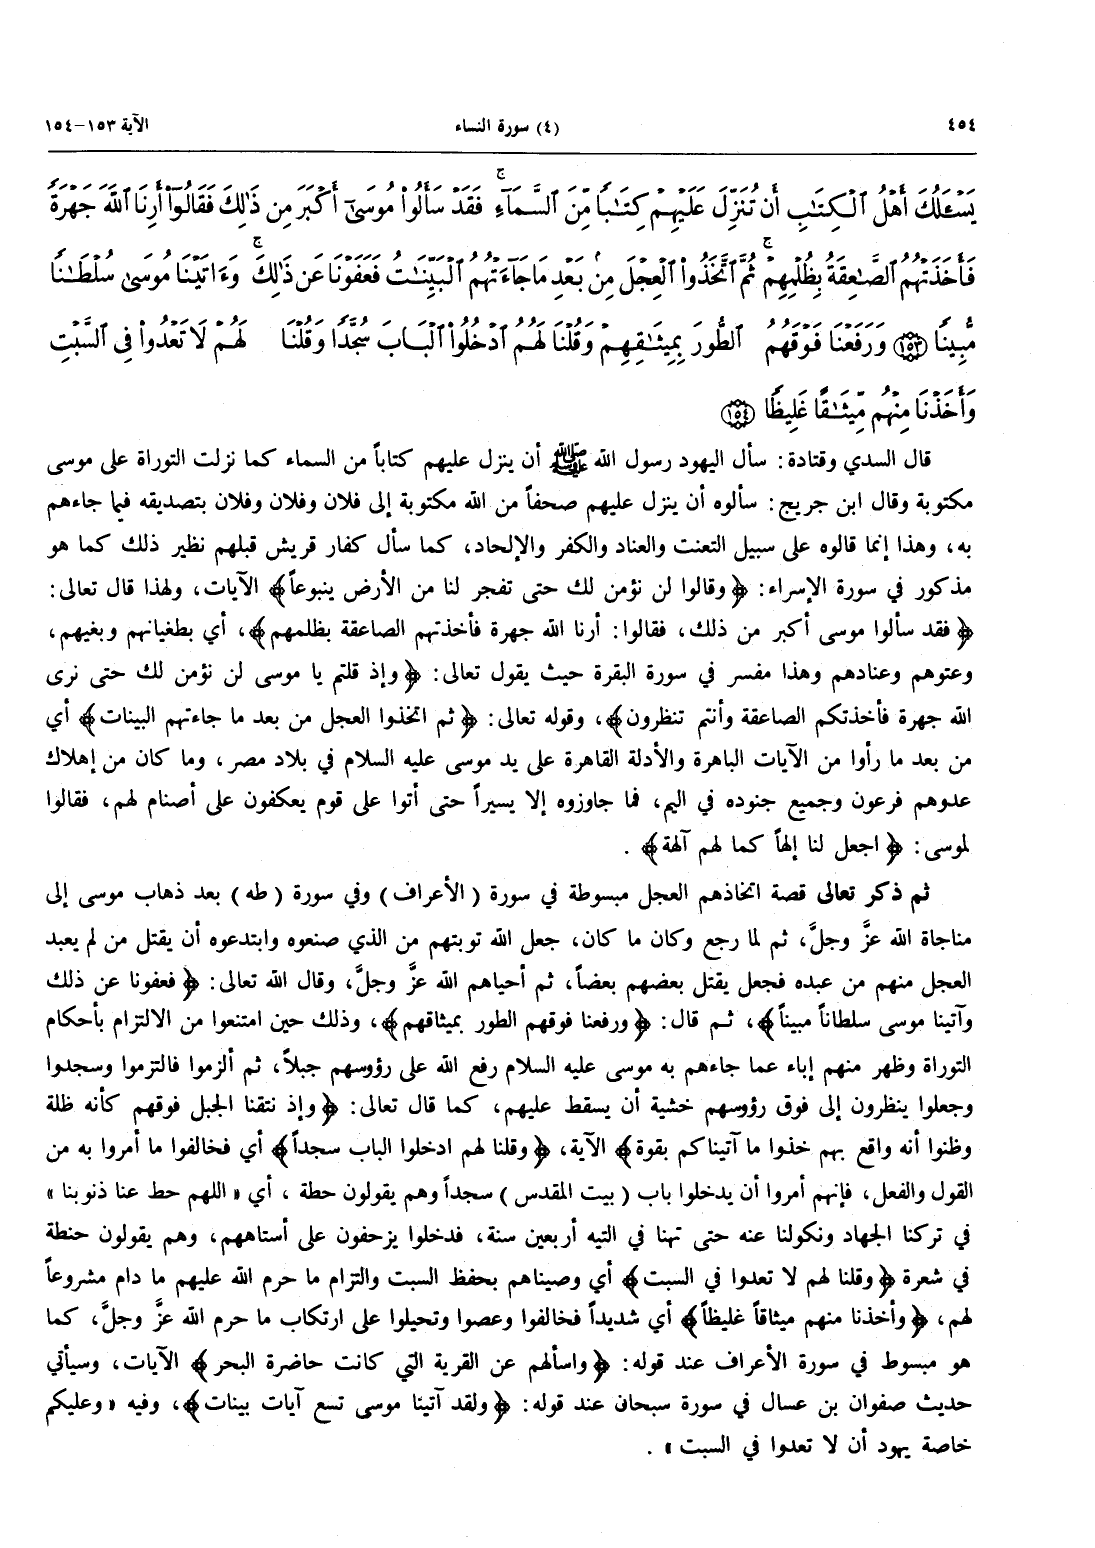 ٤٥٤ (٤) سورة النساء الآية ١٥٣-١٥٤
يَسْـَٔلُكَ أَهْلُ ٱلْكِتَٰبِ أَن تُنَزِّلَ عَلَيْهِمْ كِتَٰبًا مِّنَ ٱلسَّمَآءِ ۚ فَقَدْ سَأَلُوا۟ مُوسَىٰٓ أَكْبَرَ مِن ذَٰلِكَ فَقَالُوٓا۟ أَرِنَا ٱللَّهَ جَهْرَةً
فَأَخَذَتْهُمُ ٱلصَّٰعِقَةُ بِظُلْمِهِمْ ۚ ثُمَّ ٱتَّخَذُوا۟ ٱلْعِجْلَ مِنۢ بَعْدِ مَا جَآءَتْهُمُ ٱلْبَيِّنَٰتُ فَعَفَوْنَا عَن ذَٰلِكَ ۚ وَءَاتَيْنَا مُوسَىٰ سُلْطَٰنًا
مُّبِينًا ﴿١٥٣﴾ وَرَفَعْنَا فَوْقَهُمُ ٱلطُّورَ بِمِيثَٰقِهِمْ وَقُلْنَا لَهُمُ ٱدْخُلُوا۟ ٱلْبَابَ سُجَّدًا وَقُلْنَا لَهُمْ لَا تَعْدُوا۟ فِى ٱلسَّبْتِ
وَأَخَذْنَا مِنْهُم مِّيثَٰقًا غَلِيظًا ﴿١٥٤﴾
قال السدي وقتادة: سأل اليهود رسول الله ﷺ أن ينزل عليهم كتاباً من السماء كما نزلت التوراة على موسى
مكتوبة وقال ابن جريج: سألوه أن ينزل عليهم صحفاً من الله مكتوبة إلى فلان وفلان وفلان بتصديقه فيما جاءهم
به، وهذا إنما قالوه على سبيل التعنت والعناد والكفر والإلحاد، كما سأل كفار قريش قبلهم نظير ذلك كما هو
مذكور في سورة الإسراء: ﴿وقالوا لن نؤمن لك حتى تفجر لنا من الأرض ينبوعاً﴾ الآيات، ولهذا قال تعالى:
﴿فقد سألوا موسى أكبر من ذلك، فقالوا: أرنا الله جهرة فأخذتهم الصاعقة بظلمهم﴾، أي بطغيانهم وبغيهم،
وعتوهم وعنادهم وهذا مفسر في سورة البقرة حيث يقول تعالى: ﴿وإذ قلتم يا موسى لن نؤمن لك حتى نرى
الله جهرة فأخذتكم الصاعقة وأنتم تنظرون﴾، وقوله تعالى: ﴿ثم اتخذوا العجل من بعد ما جاءتهم البينات﴾ أي
من بعد ما رأوا من الآيات الباهرة والأدلة القاهرة على يد موسى عليه السلام في بلاد مصر، وما كان من إهلاك
عدوهم فرعون وجميع جنوده في اليم، فما جاوزوه إلا يسيراً حتى أتوا على قوم يعكفون على أصنام لهم، فقالوا
لموسى: ﴿اجعل لنا إلهاً كما لهم آلهة﴾ .
ثم ذكر تعالى قصة اتخاذهم العجل مبسوطة في سورة (الأعراف) وفي سورة (طه) بعد ذهاب موسى إلى
مناجاة الله عزَّ وجلَّ، ثم لما رجع وكان ما كان، جعل الله توبتهم من الذي صنعوه وابتدعوه أن يقتل من لم يعبد
العجل منهم من عبده فجعل يقتل بعضهم بعضاً، ثم أحياهم الله عزَّ وجلَّ، وقال الله تعالى: ﴿فعفونا عن ذلك
وآتينا موسى سلطاناً مبيناً﴾، ثم قال: ﴿ورفعنا فوقهم الطور بميثاقهم﴾، وذلك حين امتنعوا من الالتزام بأحكام
التوراة وظهر منهم إباء عما جاءهم به موسى عليه السلام رفع الله على رؤوسهم جبلاً، ثم ألزموا فالتزموا وسجدوا
وجعلوا ينظرون إلى فوق رؤوسهم خشية أن يسقط عليهم، كما قال تعالى: ﴿وإذ نتقنا الجبل فوقهم كأنه ظلة
وظنوا أنه واقع بهم خذوا ما آتيناكم بقوة﴾ الآية، ﴿وقلنا لهم ادخلوا الباب سجداً﴾ أي فخالفوا ما أمروا به من
القول والفعل، فإنهم أمروا أن يدخلوا باب (بيت المقدس) سجداً وهم يقولون حطة ، أي «اللهم حط عنا ذنوبنا»
في تركنا الجهاد ونكولنا عنه حتى تهنا في التيه أربعين سنة، فدخلوا يزحفون على أستاههم، وهم يقولون حنطة
في شعرة ﴿وقلنا لهم لا تعدوا في السبت﴾ أي وصيناهم بحفظ السبت والتزام ما حرم الله عليهم ما دام مشروعاً
لهم، ﴿وأخذنا منهم ميثاقاً غليظاً﴾ أي شديداً فخالفوا وعصوا وتحيلوا على ارتكاب ما حرم الله عزَّ وجلَّ، كما
هو مبسوط في سورة الأعراف عند قوله: ﴿واسألهم عن القرية التي كانت حاضرة البحر﴾ الآيات، وسيأتي
حديث صفوان بن عسال في سورة سبحان عند قوله: ﴿ولقد آتينا موسى تسع آيات بينات﴾، وفيه «وعليكم
خاصة يهود أن لا تعدوا في السبت» .